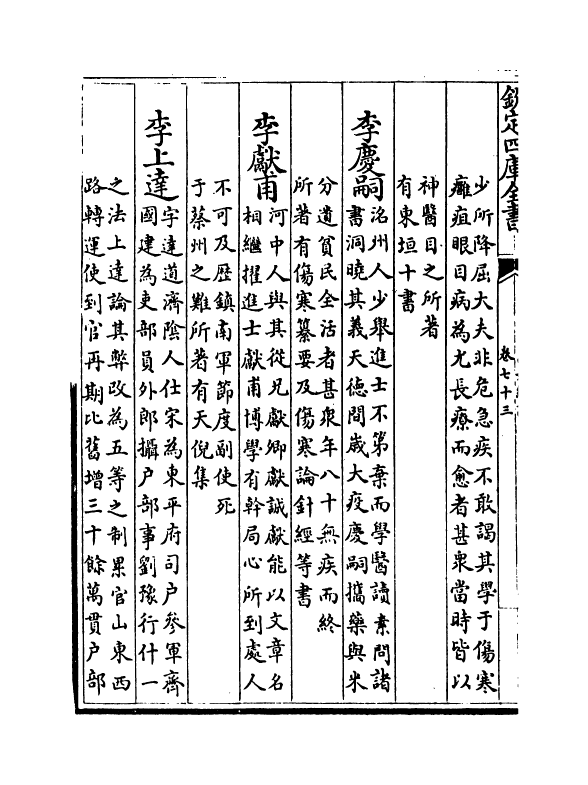 欽定四庫全書
卷七十三
少所降屈大夫非危急疾不敢謁其學于傷寒
癰疽眼目病為尤長療而愈者甚衆當時皆以
神醫目之所著
有東垣十書
李慶嗣
洺州人少舉進士不第棄而學醫讀素問諸
書洞曉其義天德間歲大疫慶嗣攜藥與米
分遺貧民全活者甚衆年八十無疾而終
所著有傷寒纂要及傷寒論針經等書
李獻甫
河中人與其從兄獻卿獻誠獻能以文章名
相繼擢進士獻甫博學有幹局心所到處人
不可及歴鎮南軍節度副使死
于蔡州之難所著有天倪集
李上達
字達道濟陰人仕宋為東平府司户參軍齊
國建為吏部員外郎攝户部事劉豫行什一
之法上達論其弊改為五等之制累官山東西
路轉運使到官再期比舊增三十餘萬貫户部